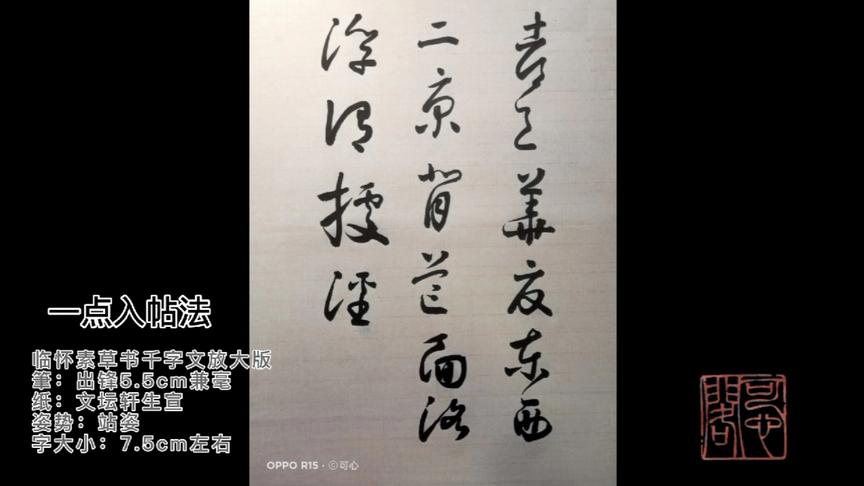 都邑華夏東西
二京背芒面洛
浮渭據涇
一点入帖法
临怀素草书千字文放大版
筆：出锋5.5cm兼毫
纸：文坛轩生宣
姿势：站姿
字大小：7.5cm左右
OPPO R15 · ⓒ可心